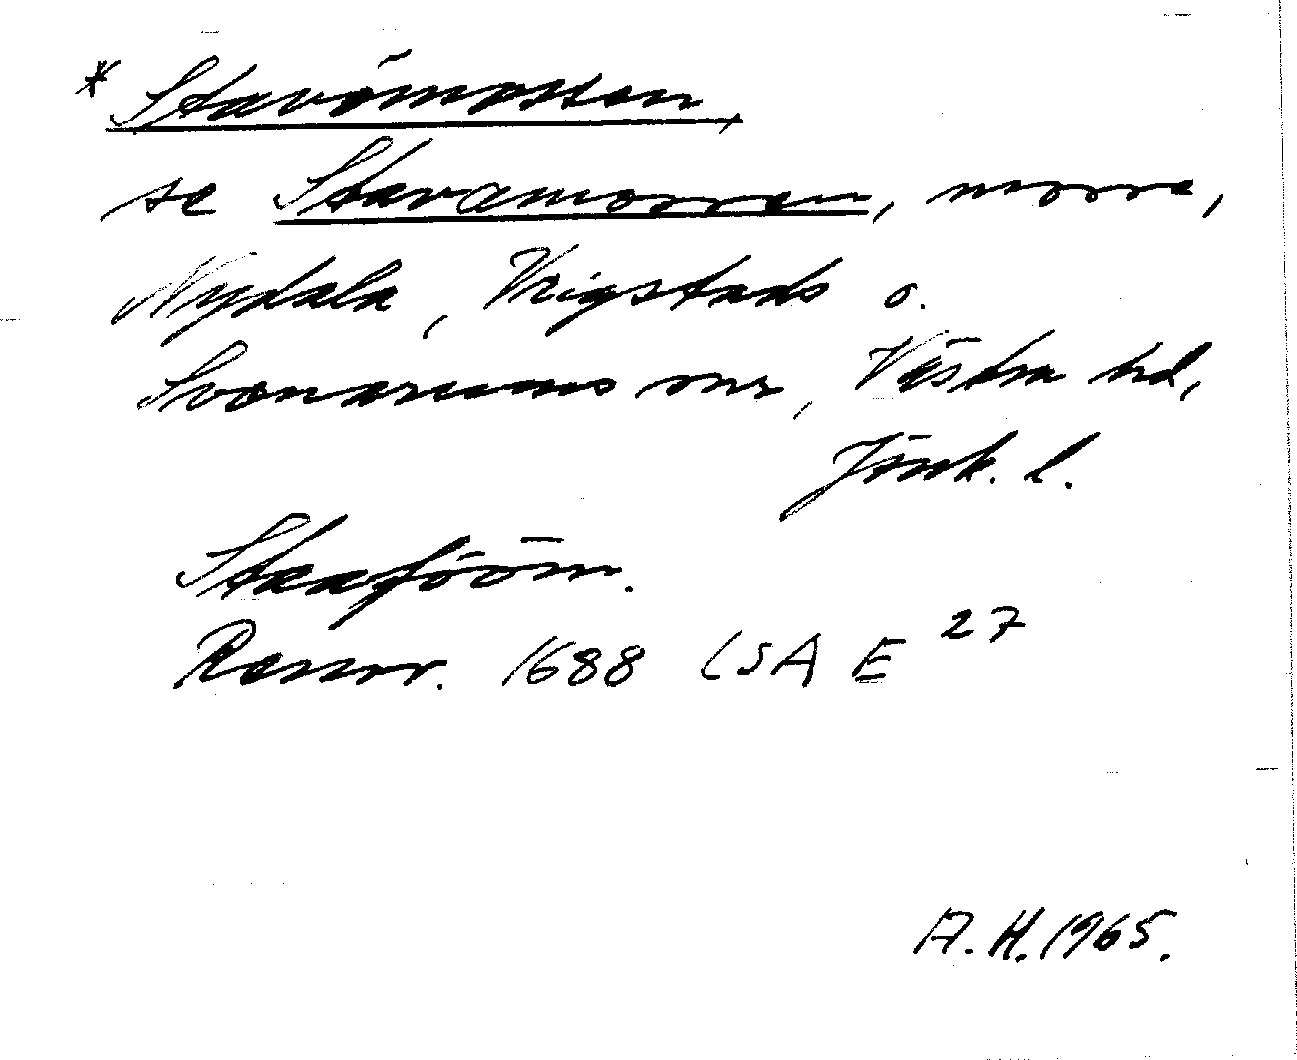 * Stavömossen,
se Stavamossen, mosse,
Nydala, Vrigstads o.
Svenarums snr, Västra hd,
Jönk. l.
Staafööm.
Ransr. 1688 LSA E 27
A. H. 1965.